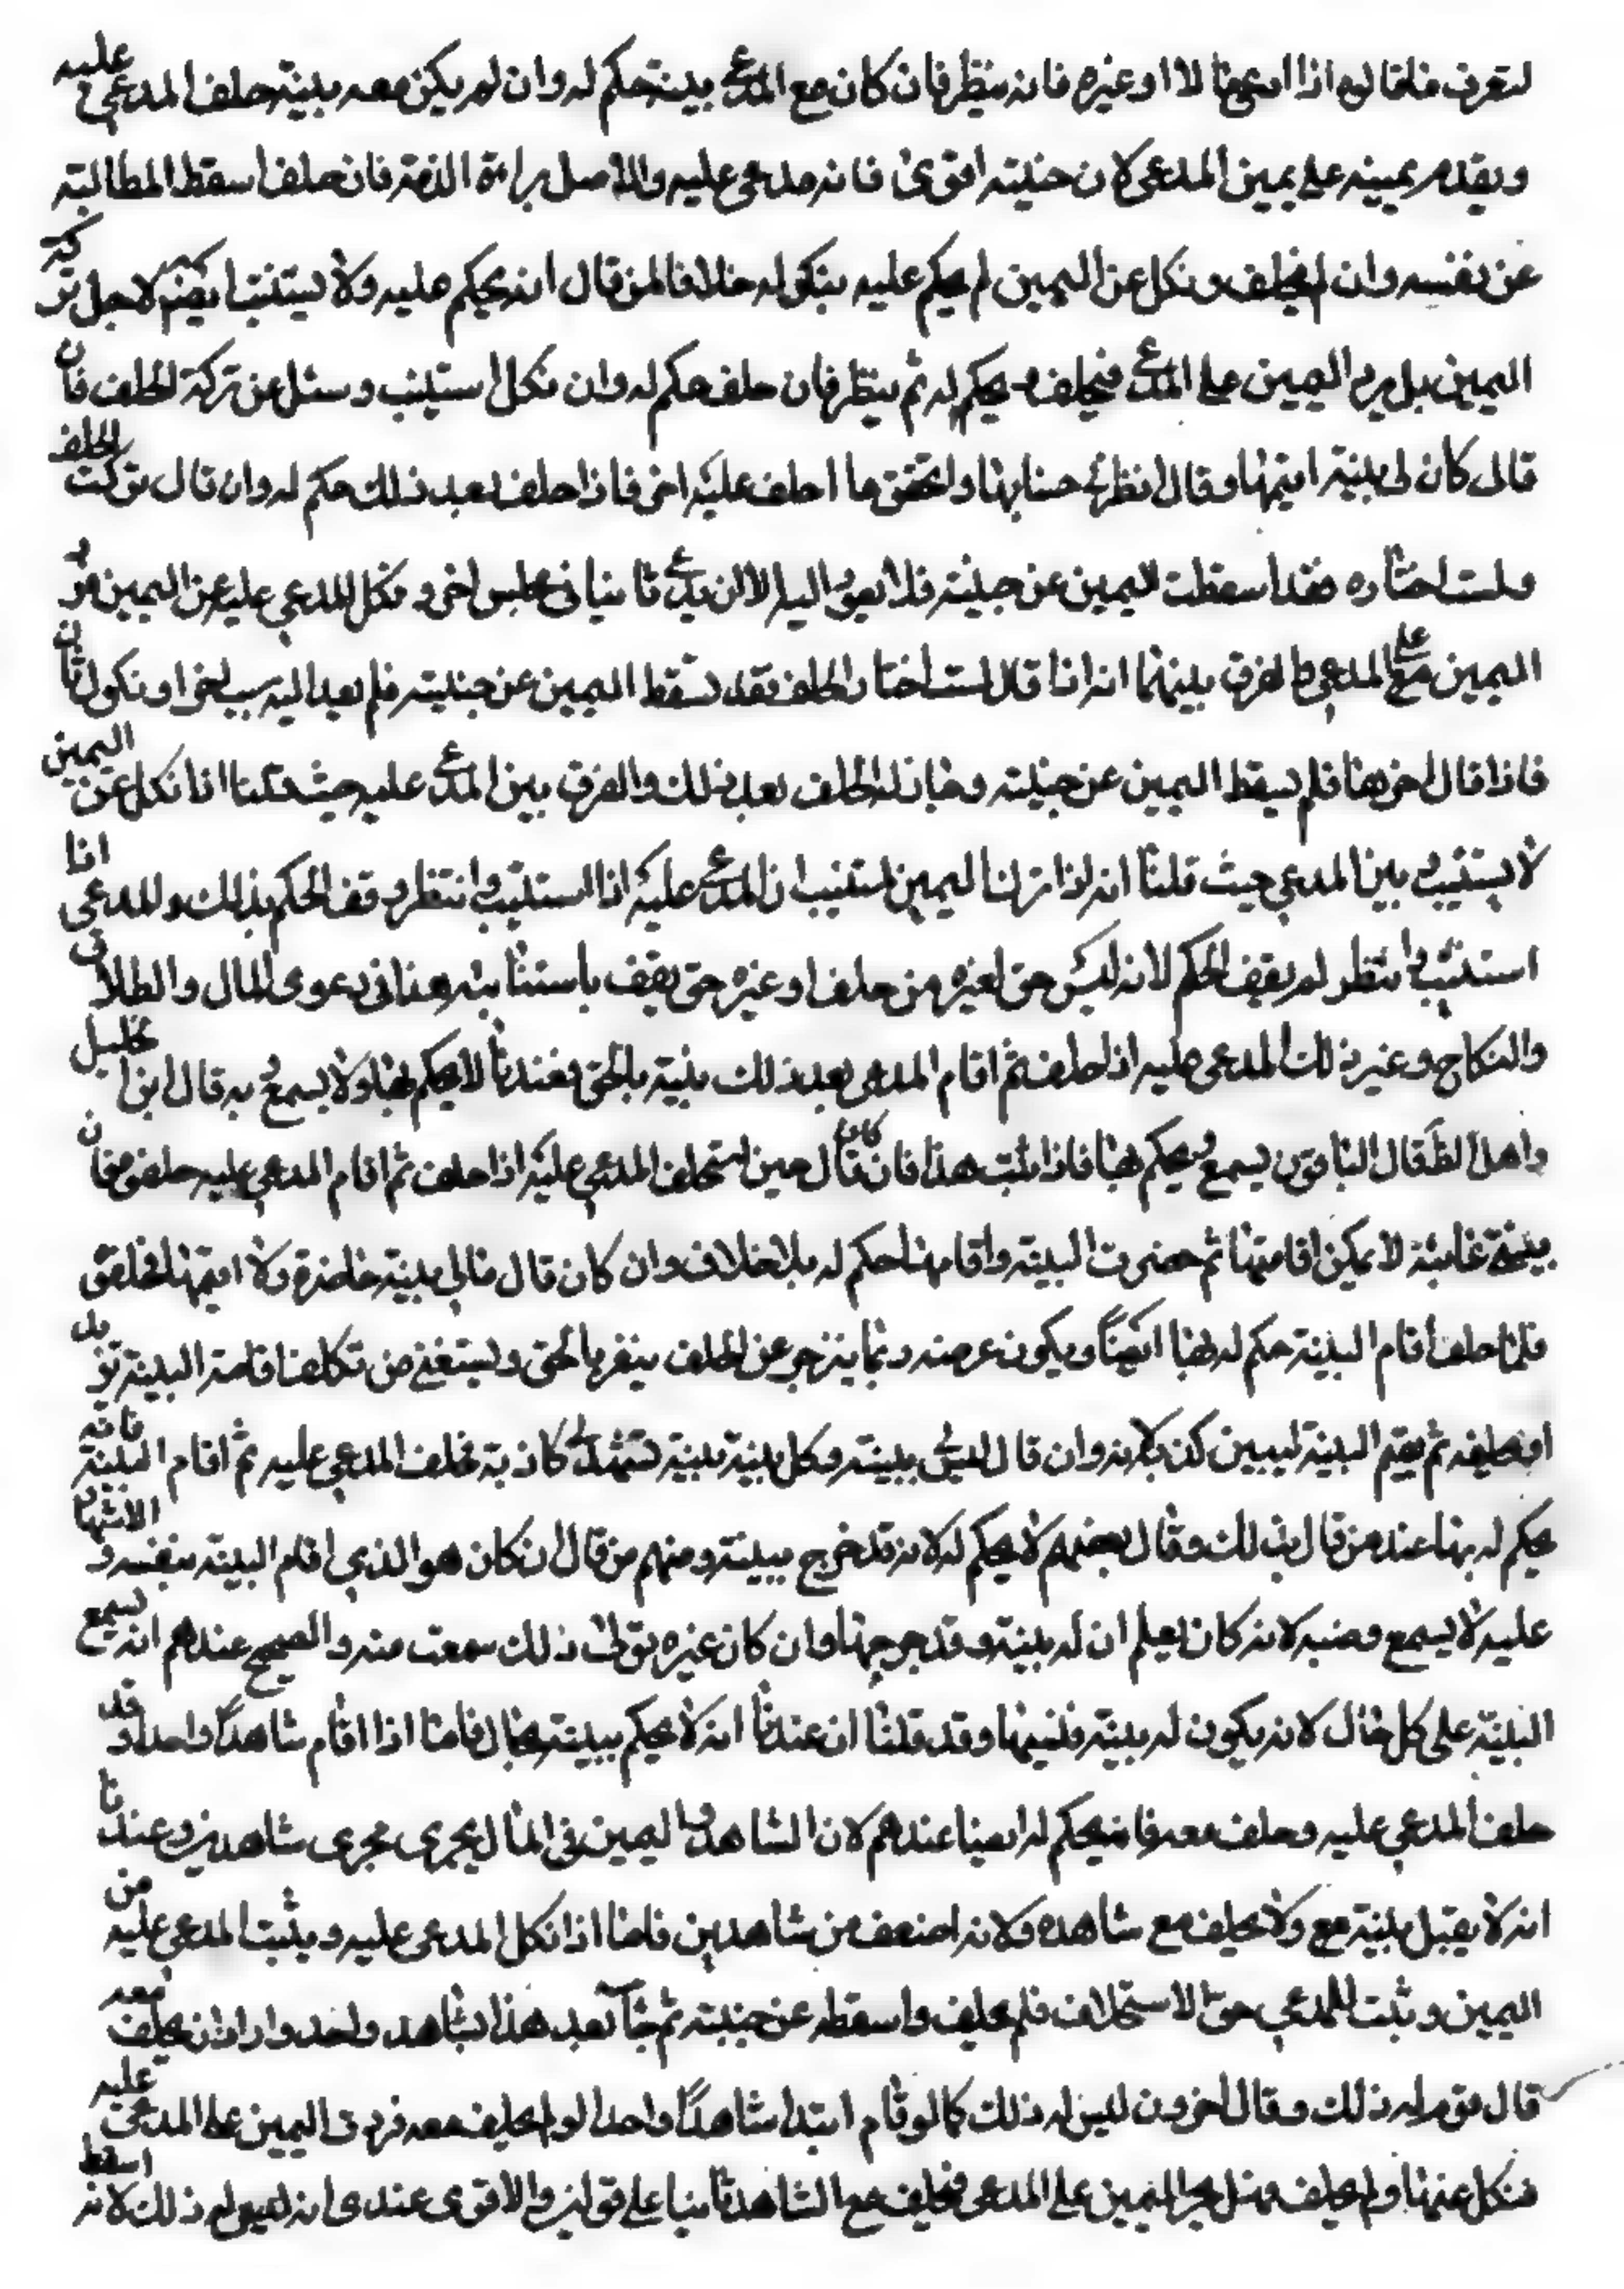 لتعرف فلقا له اذا ادعى مالا او غيره فانه ينظر فان كان مع المدعى بينة حكم له وان لم يكن معه بينة حلف المدعى عليه
ويقدم يمينه على يمين المدعى لان جنبته اقوى فانه مدعى عليه والاصل براءة الذمة فان حلف اسقط المطالبة
عن نفسه وان لم يحلف ونكل عن اليمين لم يحكم عليه بنكوله خلافا لمن قال انه يحكم عليه ولا يستثبت ايضا لاجل تركه
اليمين بل يرد اليمين على المدعى فيحلف ويحكم له ثم ينظر فان حلف حكم له وان نكل استثبت وسئل عن تركة الحلف فان
قال كان لى بينة اقيمها وقال انظر فى حسابها واتحقق ما احلف عليه اخر فاذا حلف بعد ذلك حكم له وان قال تركت الحلف
ولست اختاره فقد اسقطت اليمين عن جنبته فلا يعود اليه الا ان يدعى ثانيا فى مجلس اخر و نكل المدعي عليه عن اليمين فيرد
اليمين على المدعي والفرق بينهما انه اذا قال لست اختار الحلف فقد سقط اليمين عن جنبته فلم يعد اليه بسبب اخر او نكول ثان
فاذا قال اخرها فلم يسقط اليمين عن جنبته وجاز له الحلف بعد ذلك والفرق بين المدعى عليه حيث قلنا اذا نكل عن اليمين
لا يستثبت و بين المدعي حيث قلنا انه اذا ترك اليمين استثبت ان المدعى عليه اذا استثبت وانتظر وقف الحكم بذلك والمدعى اذا
استثبت وانتظر لم يقف الحكم لانه ليس حق لغيره من حلف او غيره حتى يقف باستثباته هذا فى دعوى المال والطلاق
والنكاح وغير ذلك المدعى عليه اذا حلف ثم اقام المدعى بعد ذلك بينة بالحق فعندنا لا يحكم بها ولا يسمع به قال ابن ابى ليلى
واهل الظ قال الباقون يسمع ويحكم بها فاذا ثبت هذا فان كان قال حين استحلف المدعي عليه اذا حلف ثم اقام المدعي عليه حلفه فان
بينتى غائبة لا يمكن اقامتها ثم حضرت البينة واقامها حكم له بلا خلاف وان كان قال مالي بينة حاضرة ولا اقيمها فحلفوه
فلما حلف اقام البينة حكم له بها ايضا ويكون غرضه ربما ينزجر عن الحلف فيقر بالحق ويستغنى من تكلف اقامة البينة بل
او يحلفه ثم يقيم البينة ليبين كذبه لانه وان قال ليس لى بينة وكل بينة بينة تشهد لى كاذبة فحلف المدعي عليه ثم اقام البينة فانه
يحكم له بها عند من قال بذلك وقال بعضهم لا يحكم له لانه قد خرج ببينته ومنهم من قال ان كان هو الذي اقام البينة بنفسه والاشهاد
عليه لا يسمع ومنه لانه كان يعلم ان له بينة وقد جرحها وان كان غيره تولى ذلك سمعت منه والصحيح عندهم انه يسمع
البينة على كل حال لانه يكون له بينة فنسيها وقد قلنا ان عندنا انه لا يحكم ببينته بحال فاما اذا اقام شاهدا واحدا وقد
حلف المدعي عليه وحلف معه فانه يحكم له ايضا عندهم لان الشاهد واليمين فى المال يجرى مجرى شاهدين وعندنا
انه لا يقبل بينته مع ولا يحلف مع شاهده ولانه اضعف من شاهدين فاما اذا نكل المدعى عليه ويثبت المدعى عليه من
اليمين وثبت للمدعي حق الاستحلاف فلم يحلف واسقطه عن جنبته ثم جاء بعد هذا بشاهد واحد واراد ان يحلف معه
قال قوم له ذلك وقال اخرون ليس له ذلك كما لو قام ابتدا شاهدا واحدا ولم يحلف معه فردت اليمين على المدعى عليه
فنكل عنها ولم يحلف فهل يجر اليمين على المدعى فيحلف مع الشاهد ثانيا على قولين والاقوى عندى انه ليس له ذلك لانه اسقط